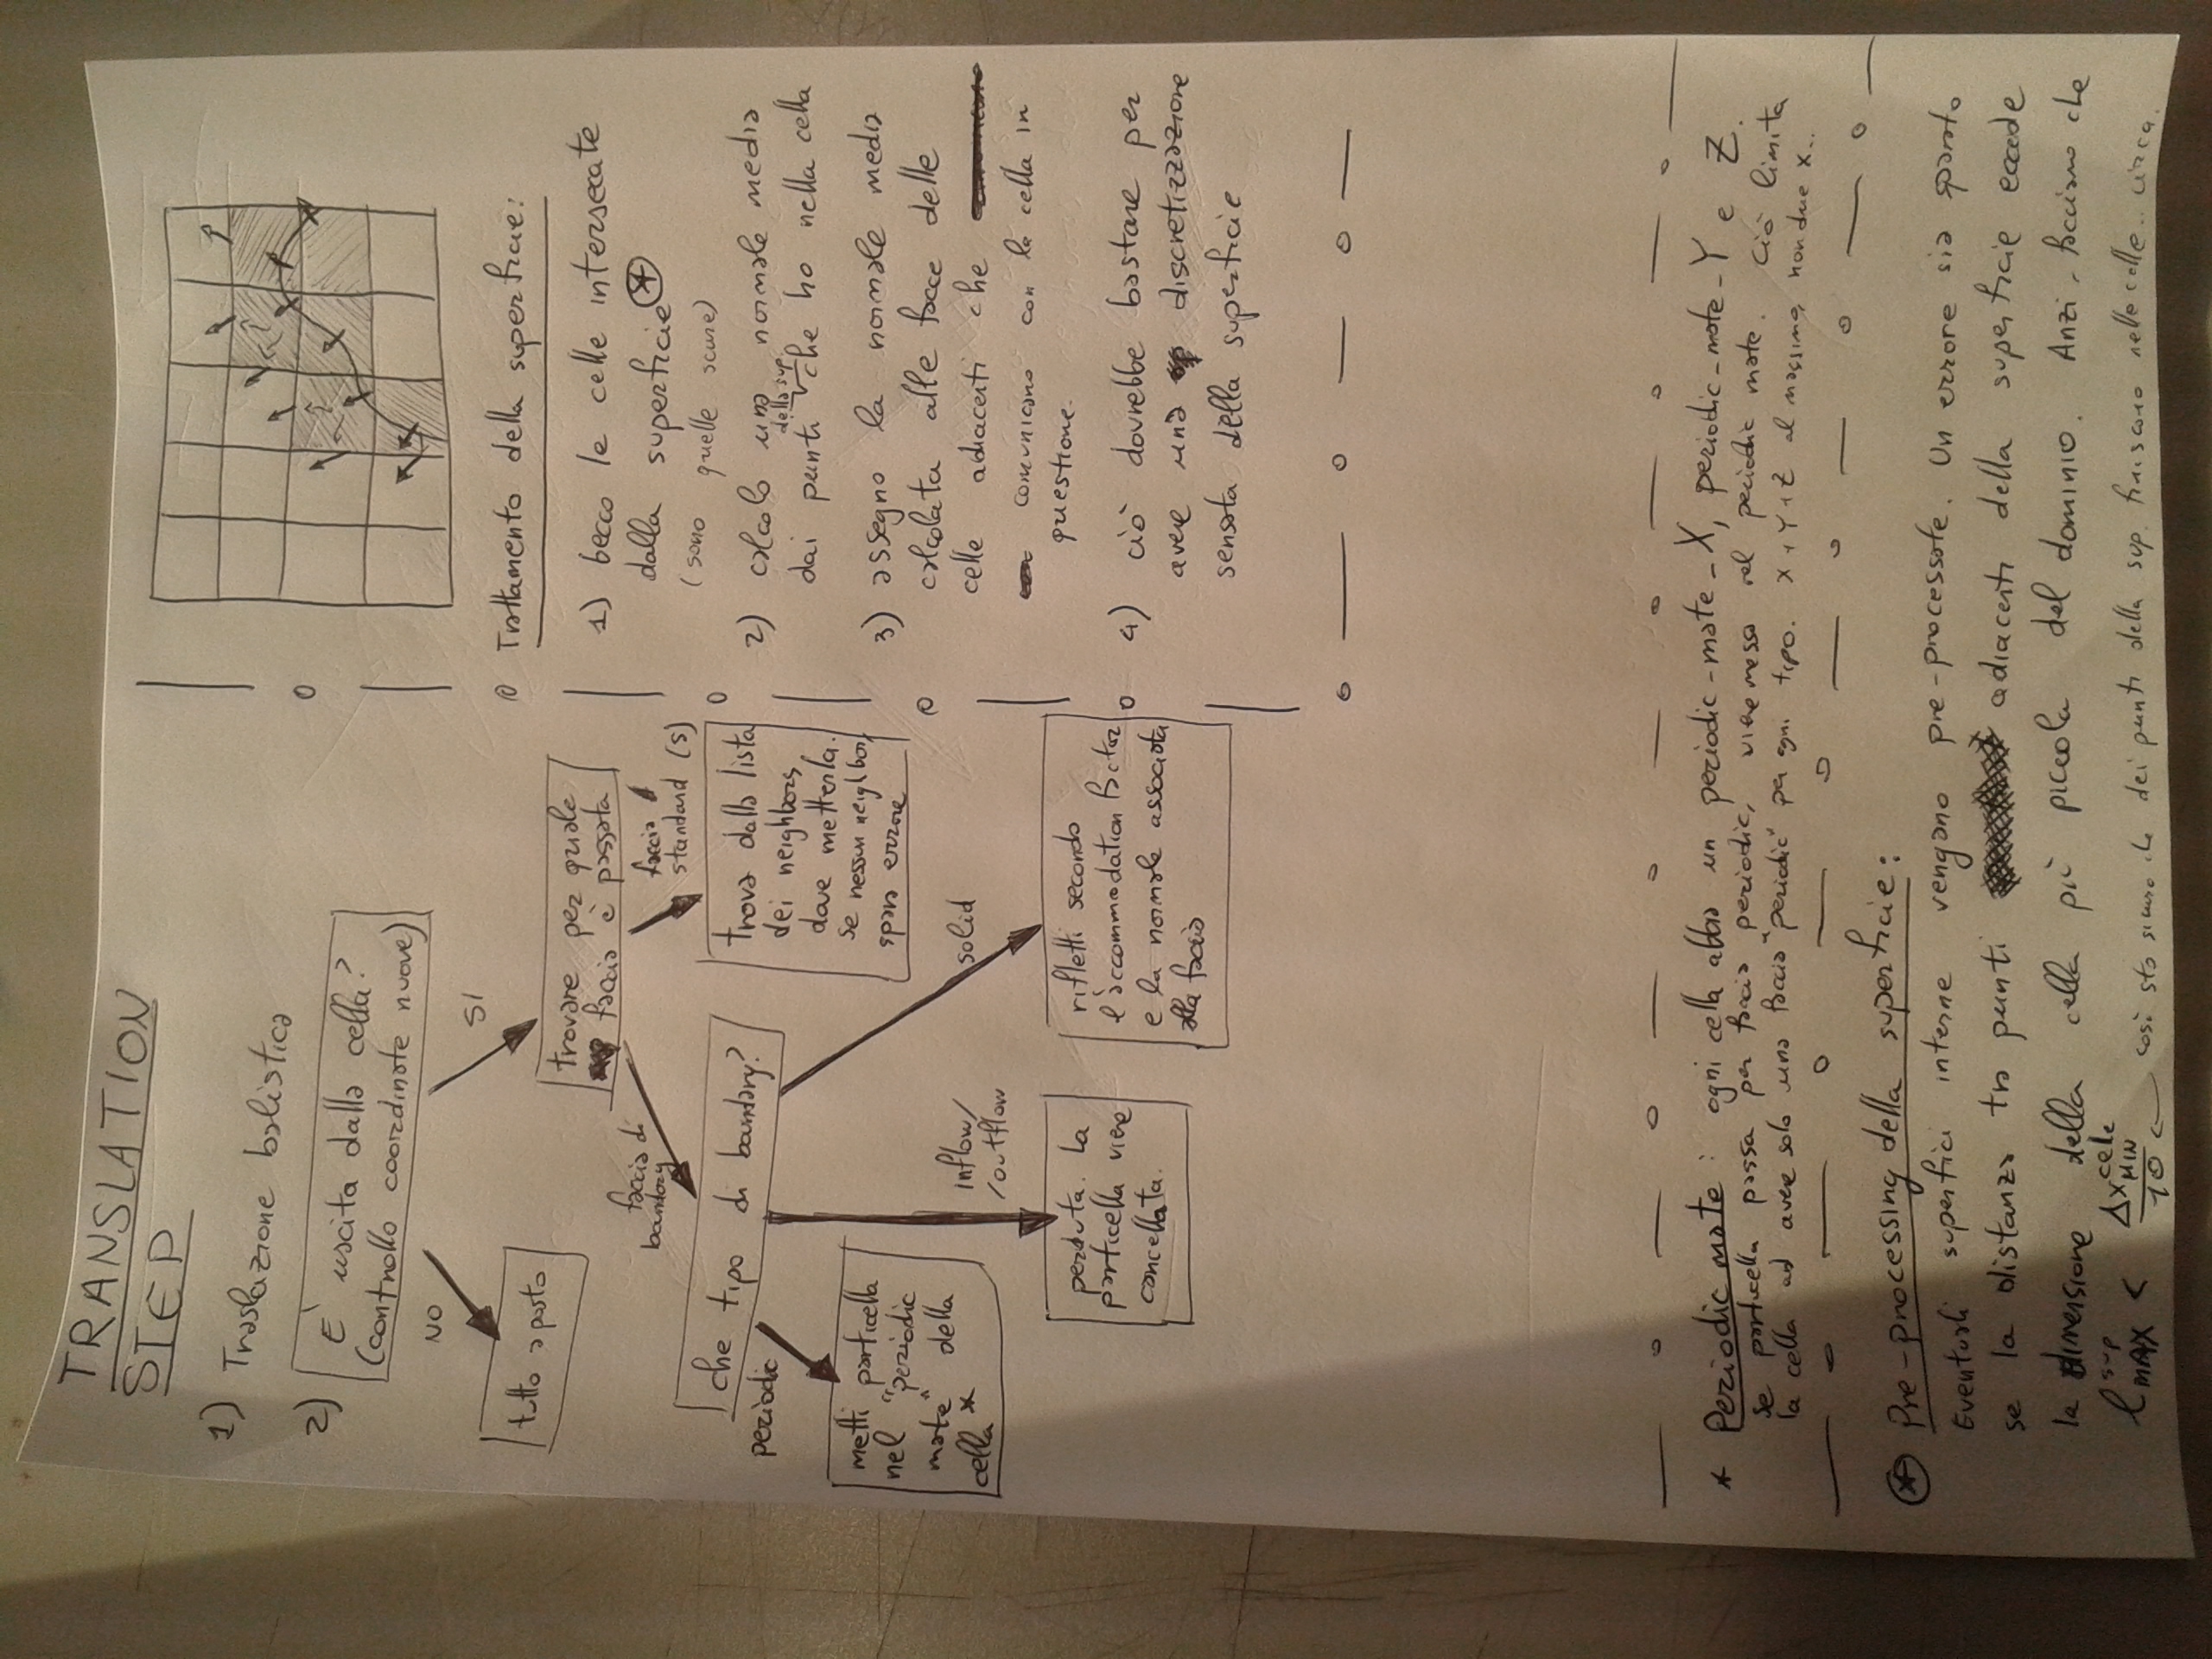 TRANSLATION
STEP
1) Traslazione balistica
2) È uscita dalla cella?
(controllo coordinate nuove)
NO
SI
tutto a posto
trovare per quale
faccia è passata
faccia di
boundary
faccia
standard (s)
trova dalla lista
dei neighbors
dove metterla.
se nessun neighbor,
spara errore
che tipo di boundary?
periodic
inflow/
/outflow
solid
metti particella
nel "periodic
mate" della
cella *
perduta. La
particella viene
cancellata.
rifletti secondo
l'accommodation factor
e la normale associata
alla faccia
Trattamento della superficie:
1) becco le celle intersecate
dalla superficie *
(sono quelle scure)
2) calcolo una normale media
della sup
dai punti che ho nella cella
3) assegno la normale media
calcolata alle facce delle
celle adiacenti che
comunicano con la cella in
questione.
4) ciò dovrebbe bastare per
avere una discretizzazione
sensata della superficie
* Periodic mate: ogni cella abbia un periodic-mate-X, periodic-mate-Y e Z.
se particella passa per faccia periodic, viene messa nel periodic mate. Ciò limita
la cella ad avere solo una faccia "periodic" per ogni tipo. X, Y, Z al massimo, non due x...
* Pre-processing della superficie:
Eventuali superfici interne vengano pre-processate. Un errore sia sparato
se la distanza tra punti adiacenti della superficie eccede
la dimensione della cella più piccola del dominio. Anzi, facciamo che
l sup MAX < Δx celle MIN / 10 ← così sto sicuro che dei punti della sup. finiscano nelle celle.. circa.